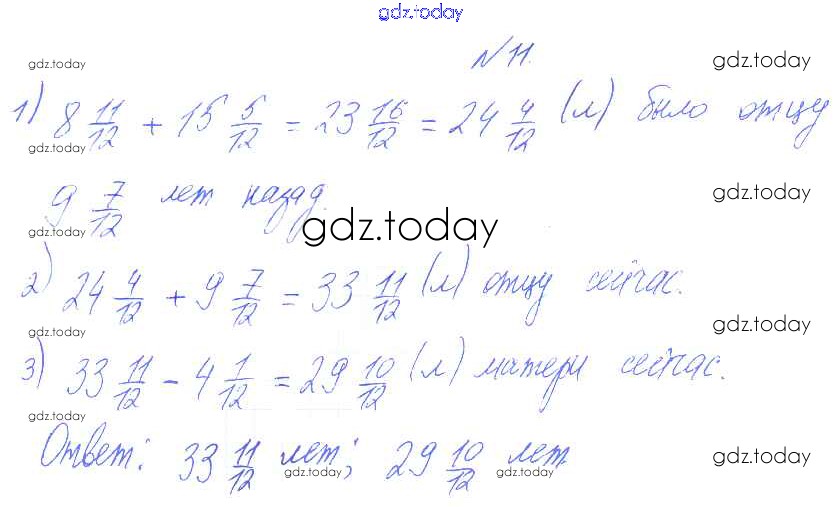 gdz.today
№ 11.
gdz.today gdz.today
1) 8 11/12 + 15 5/12 = 23 16/12 = 24 4/12 (л) было отцу
gdz.today
9 7/12 лет назад.
gdz.today
gdz.today gdz.today
2) 24 4/12 + 9 7/12 = 33 11/12 (л) отцу сейчас.
gdz.today gdz.today
3) 33 11/12 - 4 1/12 = 29 10/12 (л) матери сейчас.
gdz.today
Ответ: 33 11/12 лет; 29 10/12 лет
gdz.today gdz.today gdz.today gdz.today